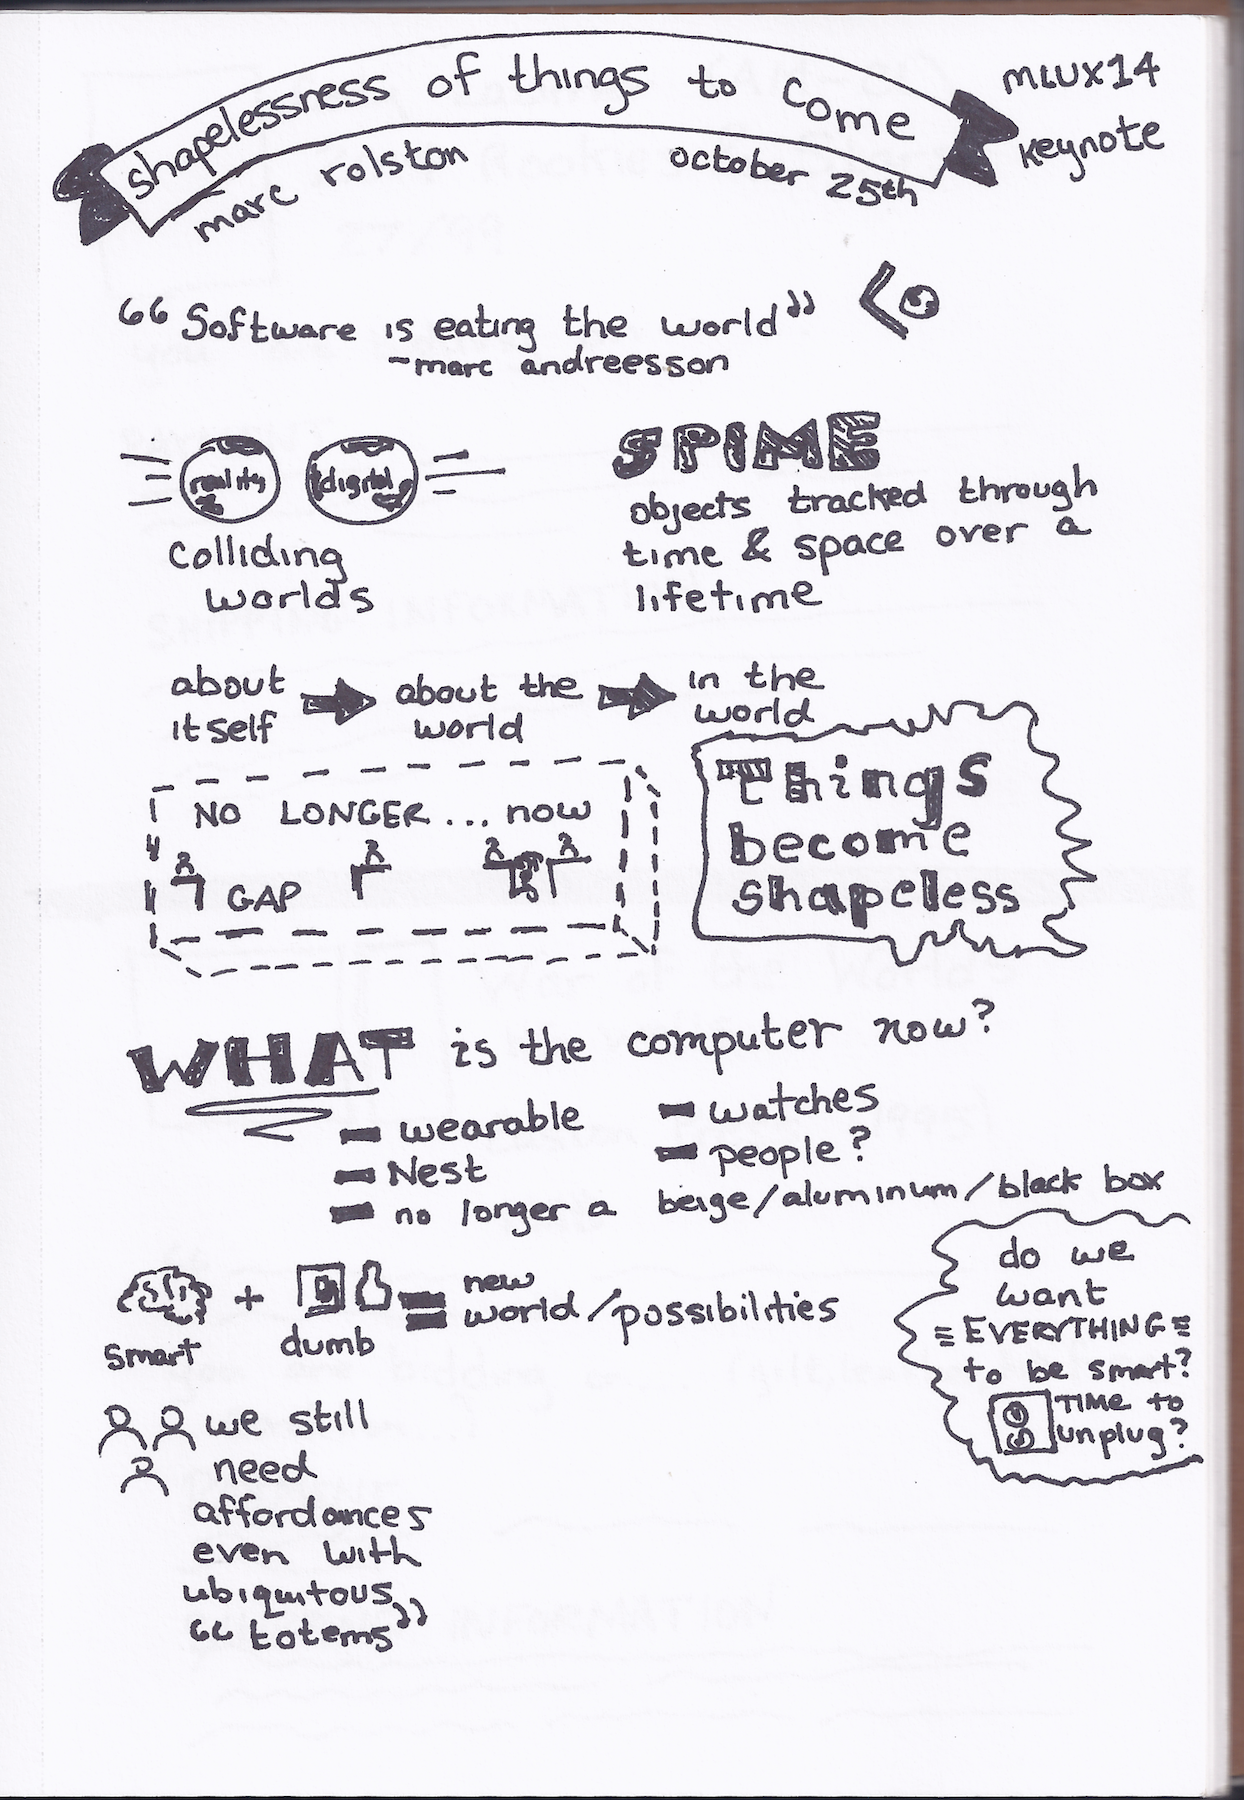 shapelessness of things to come
MLUX14
keynote
marc rolston
october 25th
“Software is eating the world”
-marc andreesson
reality digital
colliding
worlds
SPIME
objects tracked through
time & space over a
lifetime
about
itself
about the
world
in the
world
NO LONGER... now
GAP
Things
become
shapeless
WHAT is the computer now?
- wearable
- Nest
- watches
- people?
- no longer a beige/aluminum/black box
smart
+
dumb
=
new
world/possibilities
do we
want
EVERYTHING
to be smart?
TIME to
unplug?
we still
need
affordances
even with
ubiquitous
“totems”